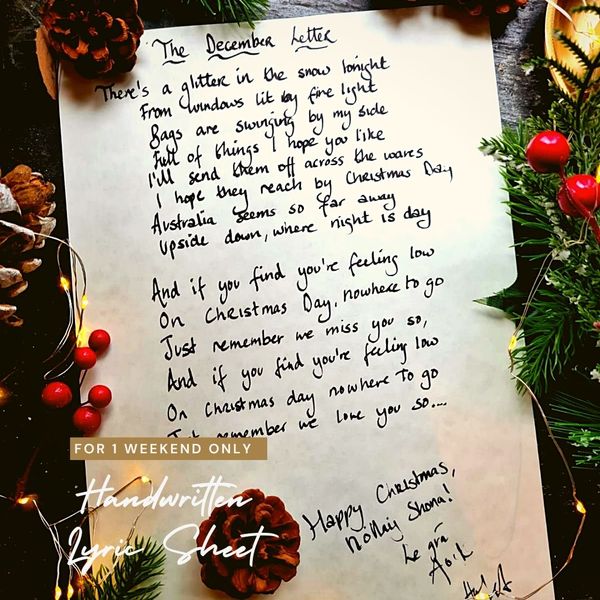 The December Letter
There's a glitter in the snow tonight
From windows lit by fire light
Bags are swinging by my side
Full of things I hope you like
I'll send them off across the waves
I hope they reach by Christmas Day
Australia seems so far away
Upside down, where night is day
And if you find you're feeling low
On Christmas Day, nowhere to go
Just remember we miss you so,
And if you find you're feeling low
On Christmas day nowhere to go
remember we love you so...
Happy Christmas,
nollaig Shona!
Le grá
FOR 1 WEEKEND ONLY
Handwritten
Lyric Sheet